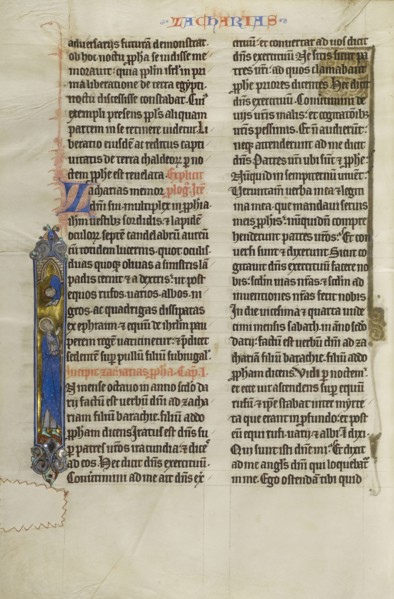 ZACHARIAS
adversarijs futurā demonstrat
ob hoc noctu ꝓpha se vidisse me
moravit: quia ppłm isrł in pri
ma liberatione de terra egypti
noctu discessisse constabat. Eius
exempli presens ppłs aliquam
partem in se tenere videtur. Li
beratio eiusdē ac reditus capti
vitatis de terra chaldeoꝝ ꝑ no
dem ꝓphe est revelata. Explicit
Zacharias memor plog. Itē
dn̄i sui multiplex in ꝓphīa
ihm vestibꝫ sordidis ⁊ lapidē
oculoꝝ septē candelabrū aureū
cū totidem lucernis quot oculis
duas quoqꝫ olivas a sinistris lā
padis cernit ⁊ a dextris: ut post
equos rufos varios albos ni
gros ac quadrigas dissipatas
ex ephraim ⁊ equū de ihrlm pau
perem regē vaticinetur ⁊ p̄dicet
sedentē sup pullū filiū subiugał.
Incipit zacharias ꝓpha. Cap. I.
In mense octavo in anno scdo da
rij factū est verbū dn̄i ad zacha
riam filiū barachie filiū addo
ꝓpham dicens. Iratus est dn̄s su
ꝑ patres vr̄os iracundia ⁊ dices
ad eos. Hec dicit dn̄s exercituū.
Convertimini ad me ait dn̄s ex
cituū: et convertar ad vos dicit
dn̄s exercituū. Ne sitis sicut pa
tres vr̄i ad quos clamabant
ꝓphe priores dicentes. Hec dicit
dn̄s exercituū. Convertimini de
vijs vr̄is malis: et cogitatōibꝫ
vr̄is pessimis. Et nō audierunt:
neqꝫ attenderunt ad me dicit
dn̄s. Patres vr̄i ubi sunt ⁊ ꝓphe.
Nūquid in sempiternū vivent:
Verumtamen verba mea ⁊ legitti
ma mea que mandavi servis
meis ꝓphis: nūquid non compre
henderunt patres vr̄os. Et con
versi sunt ⁊ dixerunt. Sicut co
gitavit dn̄s exercituū facere no
bis: scdm vias nr̄as ⁊ scdm ad
inventiones nr̄as fecit nobis.
In die vicesima ⁊ quarta unde
cimi mensis sabath in āno scdo
darij: factū est verbū dn̄i ad za
chariā filiū barachie filiū addo
ꝓpham dicens. Vidi ꝑ noctem:
et ecce vir ascendens sup equum
rufū: ⁊ ip̄e stabat inter myrte
ta que erant in ꝓfundo: et post
eum equi rufi varij ⁊ albi. ⁊ dixi.
Qui sunt isti dn̄e mi: Et dixit
ad me angls dn̄i qui loquebatur
in me. Ego ostendā tibi quid